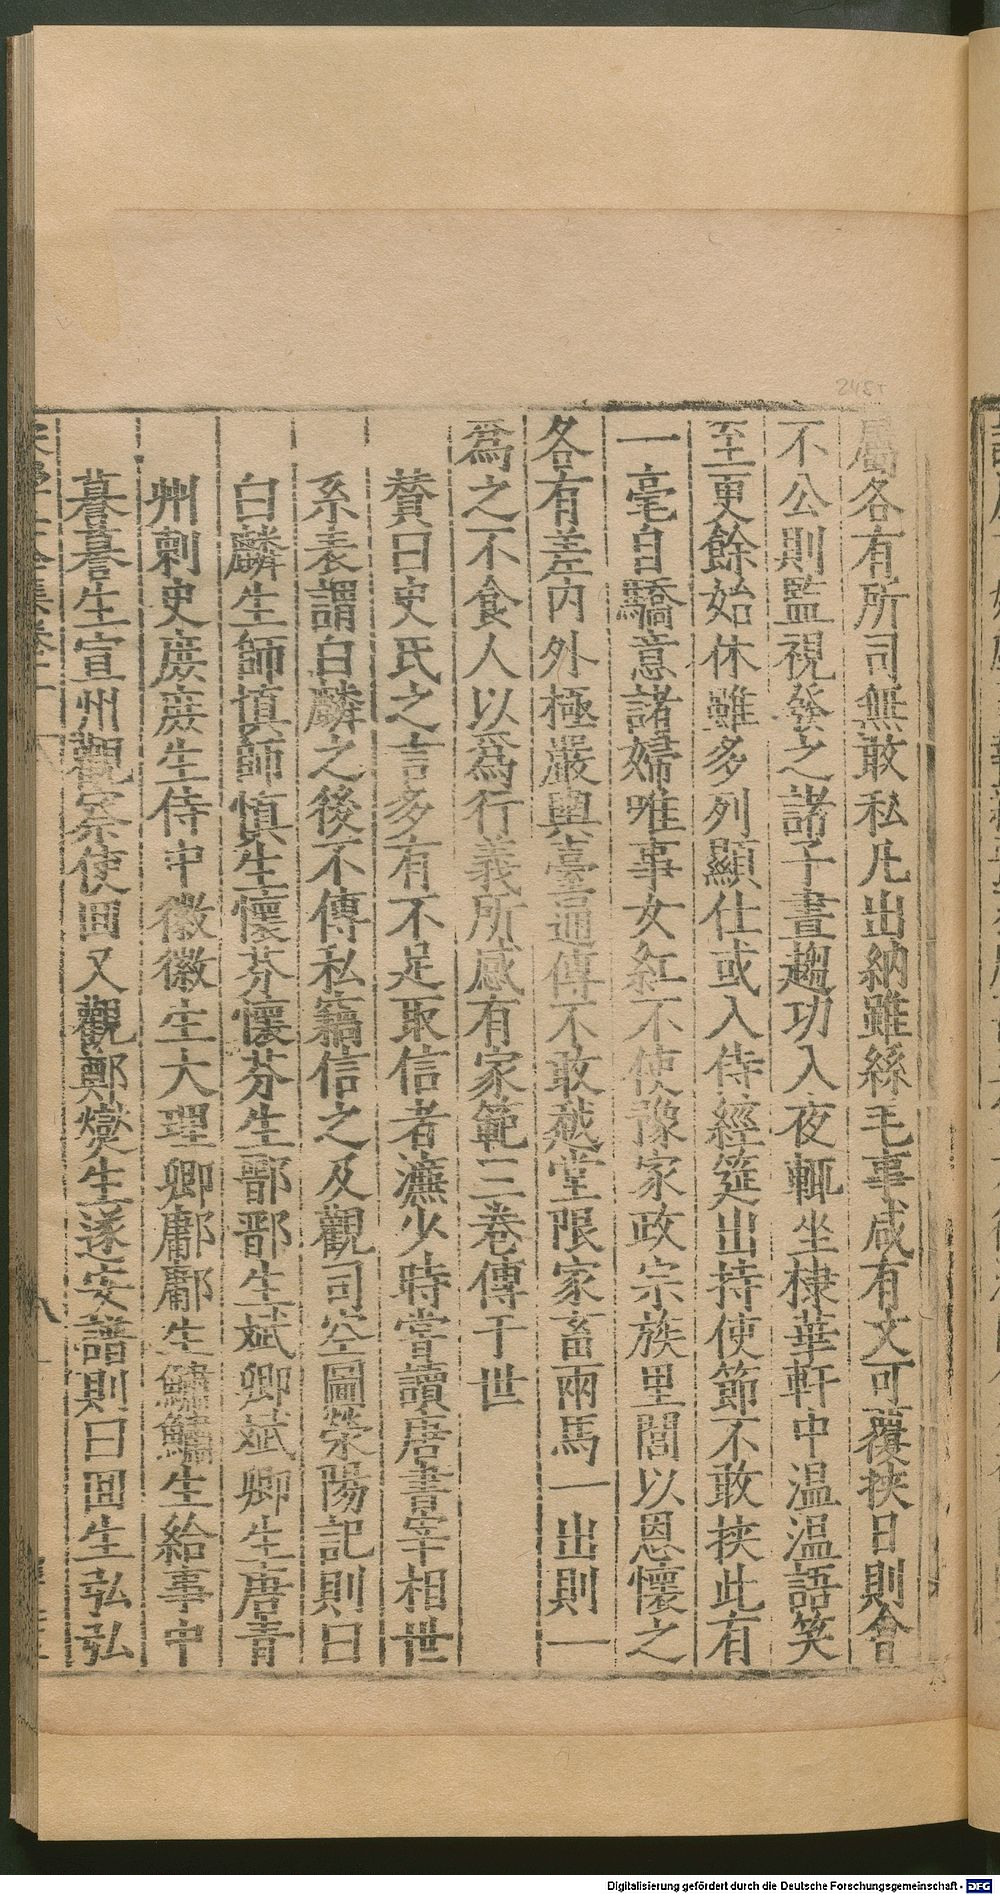 屬各有所司無敢私凡出納雖絲毛事咸有文可覆挾日則會
不公則監視發之諸子晝趨功入夜輒坐棣華軒中温温語笑
至更餘始休雖多列顯仕或入侍經筵出持使節不敢挾此有
一毫自驕意諸婦唯事女紅不使豫家政宗族里閭以恩懷之
各有差内外極嚴輿臺通傳不敢越堂限家畜兩馬一出則一
爲之不食人以爲行義所感有家範三卷傳于世
賛曰史氏之言多有不足取信者濂少時嘗讀唐書宰相世
系表謂白麟之後不傳私竊信之及觀司空圖滎陽記則曰
白麟生師慎師慎生懷芬懷芬生郻郻生斌卿斌卿生唐青
州刺史庾庾生侍中徽徽生大理卿鄘鄘生鱐鱐生給事中
蕚蕚生宣州觀察使囬又觀鄭爕生遂安譜則曰囬生弘弘
2485
Digitalisierung gefördert durch die Deutsche Forschungsgemeinschaft - DFG